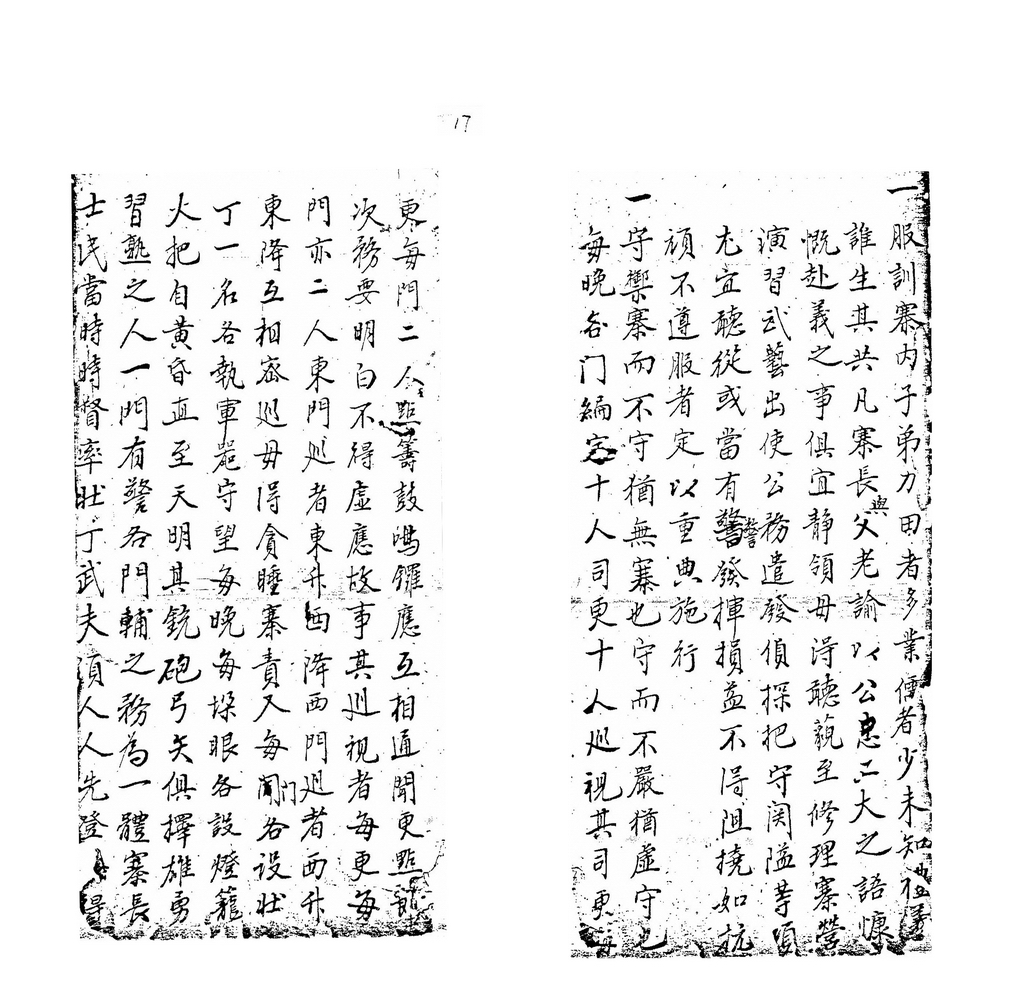 17
一服訓寨内子弟力田者多業儒者少未知禮儀
誰生其共凡寨長與父老諭以公忠正大之語慷
慨赴義之事俱宜靜領毋得聽藐至修理寨營
演習武藝出使公務遣發偵探把守関隘䓁項
尤宜聽從或當有警發揮損益不得阻撓如抗
頑不遵服者定以重典施行
一守禦寨而不守猶無寨也守而不嚴猶虛守也
每晚各门編定十人司更十人廵視其司更每
更每門二人點籌鼓鳴鑼應互相通聞更點
次務要明白不得虛應故事其廵視者每更每
門亦二人東門廵者東升西降西門廵者西升
東降互相密廵毋得貪睡寨責又每門各设壯
丁一名各執軍噐守望每晚每垜眼各設燈籠
火把自黄昏直至天明其銃砲弓矢俱擇雄勇
習熟之人一門有警各門輔之務為一體寨長
士民當時時督率壯丁武夫須人人先登得